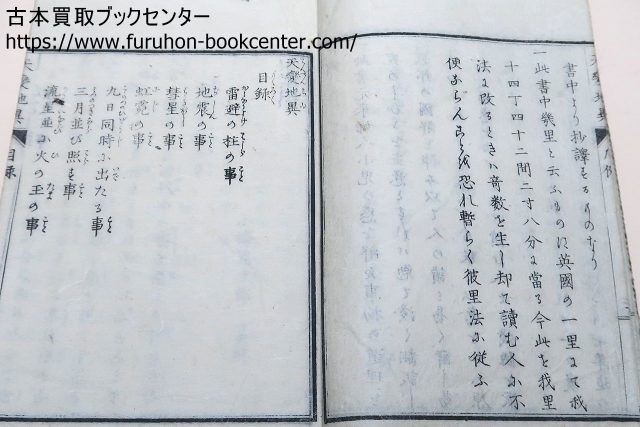 古本買取ブックセンター
https://www.furuhon-bookcenter.com/
書中より抄譯せるものなり
一此書中幾里と云ふものは英國の一里にて我
十四丁四十二間二寸八分に當る今此を我里
法に改るときは奇数を生し却て讀む人に不
便ならんことを恐れ暫らく彼里法に従ふ
天變地異
目録
雷避の柱の事
地震の事
彗星の事
虹霓の事
九日同時に出たる事
三月並び照る事
流星並に火の玉の事
天變地異
目録